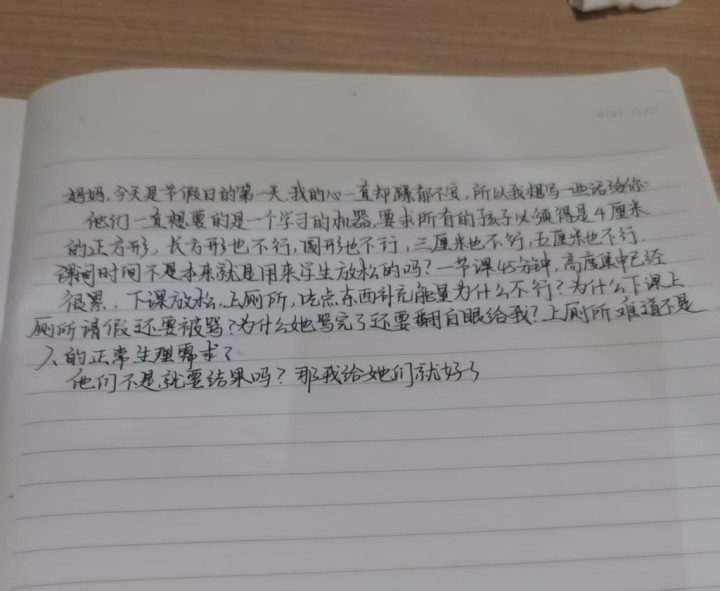 妈妈,今天是节假日的第一天,我的心一直却躁郁不安,所以我想写一些话给你
他们一直想要的是一个学习的机器,要求所有的孩子必须得是4厘米
的正方形,长方形也不行,圆形也不行,三厘米也不行,五厘米也不行,
课间时间不是本来就是用来学生放松的吗?一节课45分钟,高度集中已经
很累,下课放松,上厕所,吃点东西补充能量为什么不行?为什么下课上
厕所请假还要被骂?为什么她骂完了还要翻白眼给我?上厕所难道不是
人的正常生理需求?
他们不是就要结果吗?那我给她们就好了